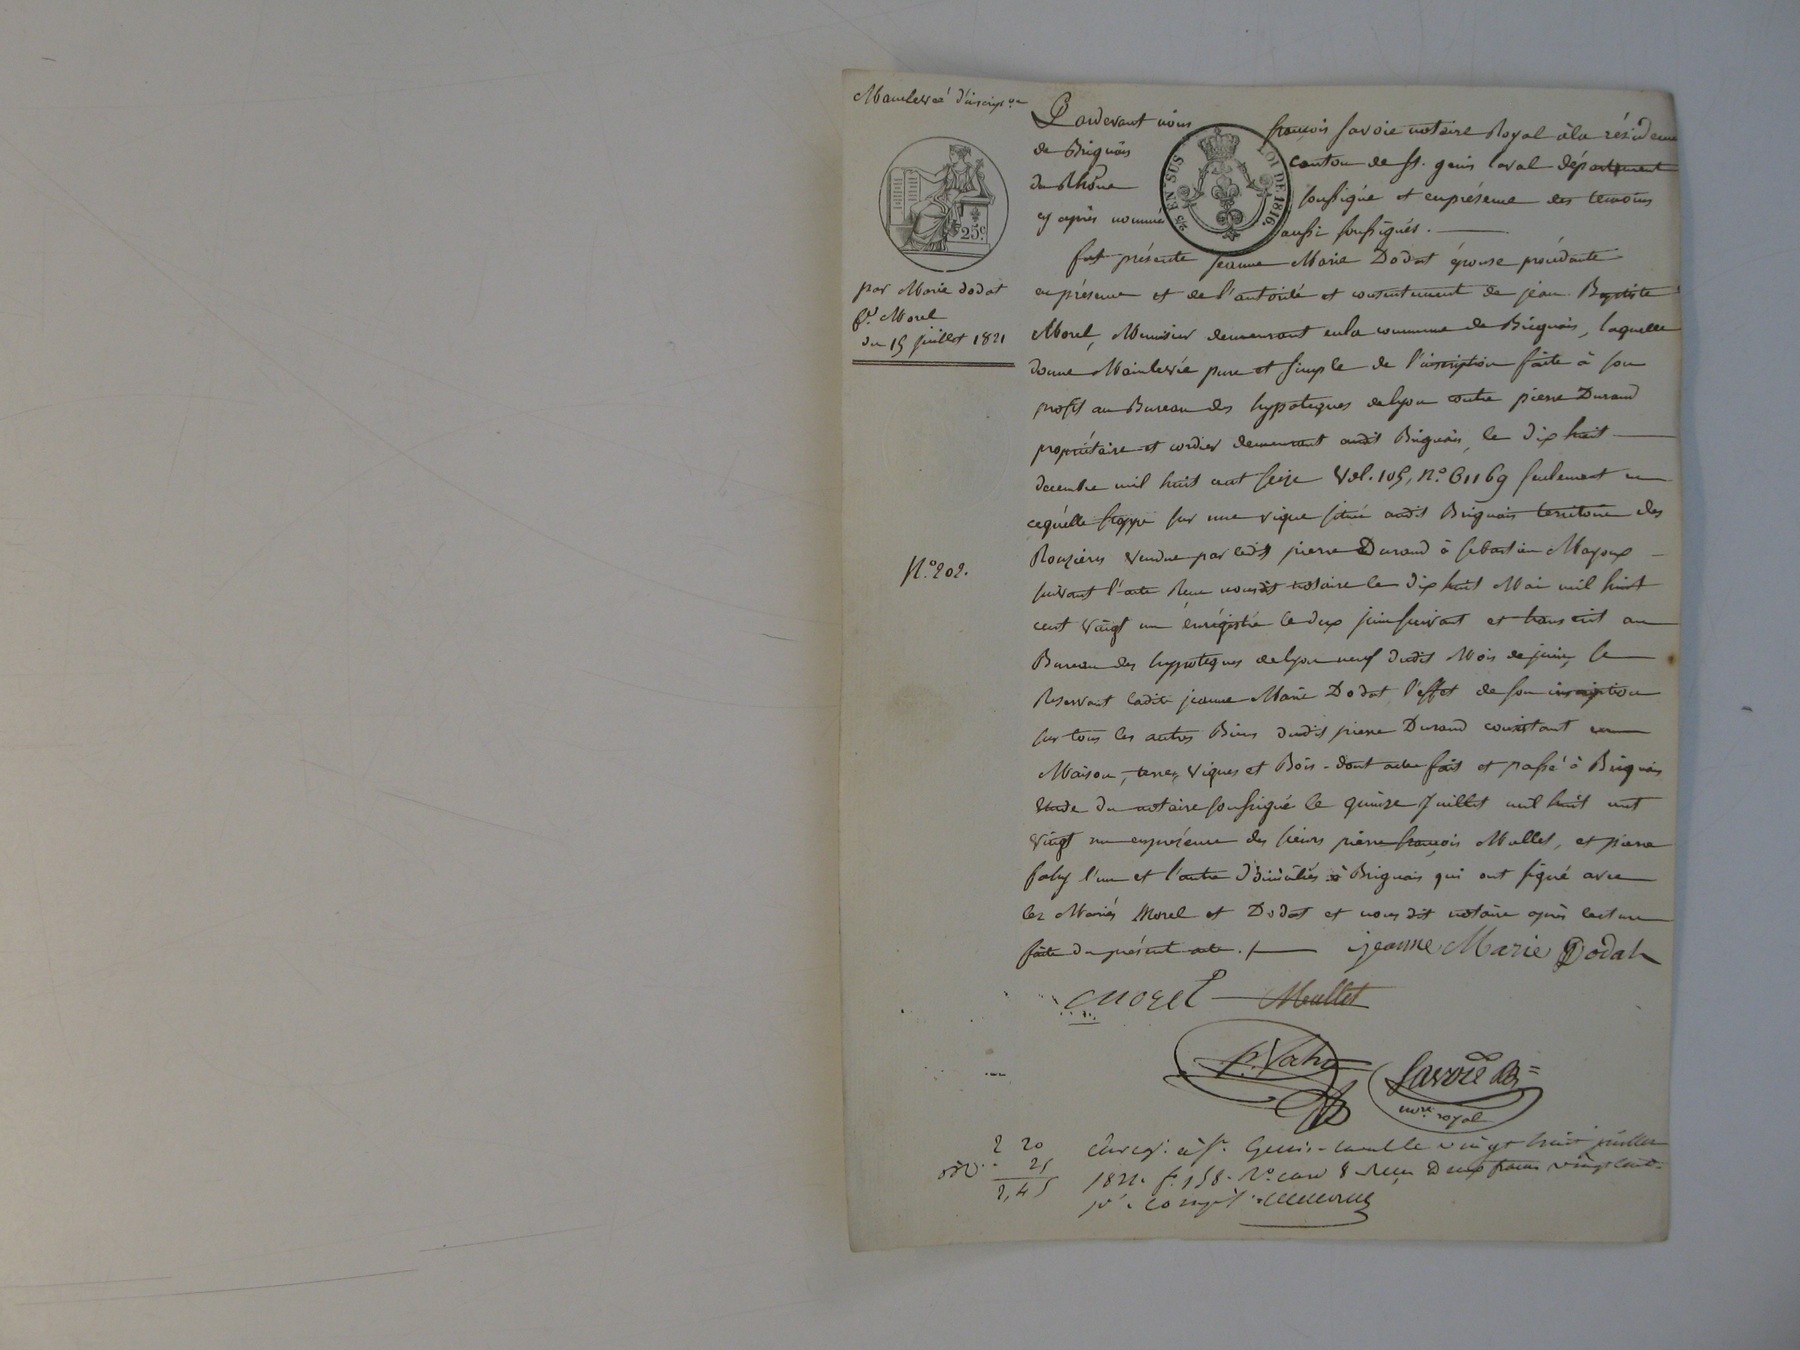 Mainlevée d'inscrip.on
25c.
2/5 EN SUS LOI DE 1816.
par Marie dodat
fe. Morel
du 15 juillet 1821
N.o 202.
Pardevant nous françois Savoie notaire Royal à la résidence
de Brignais canton de St. genis laval département
du Rhône soussigné et en présence des temoins
cy après nommés aussi soussignés.
fut présente jeanne Marie Dodat épouse procédante
en présence et de l'autorité et consentement de jean Baptiste
Morel, Menuisier demeurant en la commune de Brignais, laquelle
donne Mainlevée pure et simple de l'inscription faite à son
profit au Bureau des hypoteques de lyon contre pierre Durand
propriétaire et cordier demeurant audit Brignais, le dix huit
decembre mil huit cent seize Vol. 105, N.o 61169 seulement en
ce qu'elle frappe sur une vigne située audit Brignais territoire des
Rouzières vendue par ledit pierre Durand à sebastien Mayoux
suivant l'acte Reçu nousdit notaire le dix huit Mai mil huit
cent vingt un enrégistré le deux juin suivant et transcrit au
Bureau des hypoteques de lyon neuf dudit Mois de juin, se
Reservant ladite jeanne Marie Dodat l'effet de son inscription
sur tous les autres Biens dudit pierre Durand consistant en
Maison, terres, vignes et Bois - dont acte fait et passé à Brignais
étude du notaire soussigné le quinze Juillet mil huit cent
vingt un en présence des sieurs pierre françois Mullet, et pierre
fahy l'un et l'autre domiciliés à Brignais qui ont signé avec
les Mariés Morel et Dodat et nous dit notaire après lecture
faite du présent acte. jeanne Marie Dodat
Morel Mullet
p. Vahy Savoie
nore. royal
2 20
25
2,45
Enreg. à St. Genis-laval le vingt huit juillet
1821. f.o 158. R.o case 8 Reçu Deux francs vingt cent.